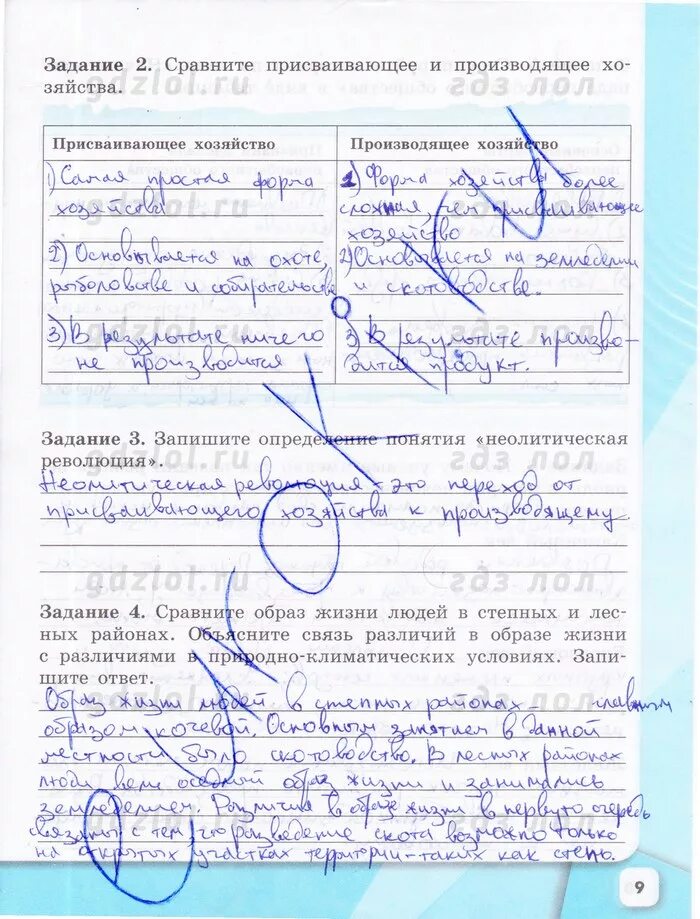 Задание 2. Сравните присваивающее и производящее хо-
зяйства.
gdzlol.ru гдз лол
Присваивающее хозяйство
Производящее хозяйство
1) Самая простая форма
хозяйства
1) Форма хозяйства более
сложная, чем присваивающее
хозяйство
gdzlol.ru гдз лол
2) Основывается на охоте,
рыболовстве и собирательстве
2) Основывается на земледелии
и скотоводстве.
3) В результате ничего
не производится
3) В результате произво-
дится продукт.
gdzlol.ru гдз лол
Задание 3. Запишите определение понятия «неолитическая
революция».
gdzlol.ru гдз лол
Неолитическая революция - это переход от
присваивающего хозяйства к производящему
gdzlol.ru гдз лол
Задание 4. Сравните образ жизни людей в степных и лес-
ных районах. Объясните связь различий в образе жизни
с различиями в природно-климатических условиях. Запи-
шите ответ.
gdzlol.ru гдз лол
Образ жизни людей в степных районах - главным
образом кочевой. Основным занятием в данной
местности было скотоводство. В лесных районах
люди вели оседлый образ жизни и занимались
земледелием. Различия в образе жизни в первую очередь
связаны с тем, что разведение скота возможно только
на открытых участках территории - таких как степь.
gdzlol.ru гдз лол
9